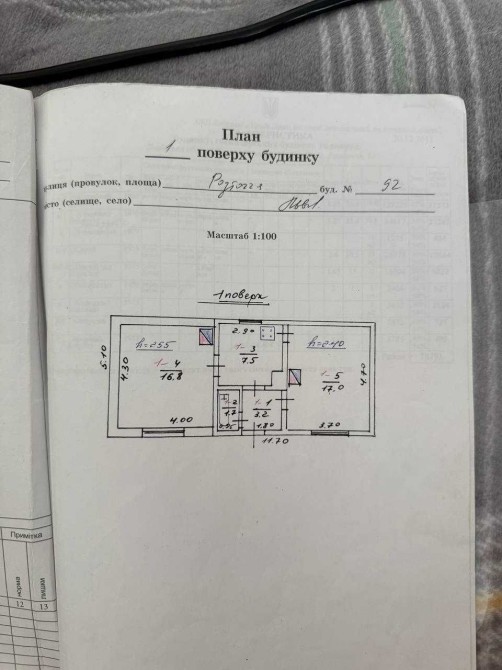 План
1 поверху будинку
улиця (провулок, площа) буд. № 92
істо (селище, село) Львів
Масштаб 1:100
1 поверх
2.90
h=255
h=240
1-3
7.5
5.10
4.30
1-4
16.8
1-5
17.0
4.70
1-2
1.7
1-1
3.2
4.00
1.80
3.70
11.70
Примітка
норма
лишки
12 13